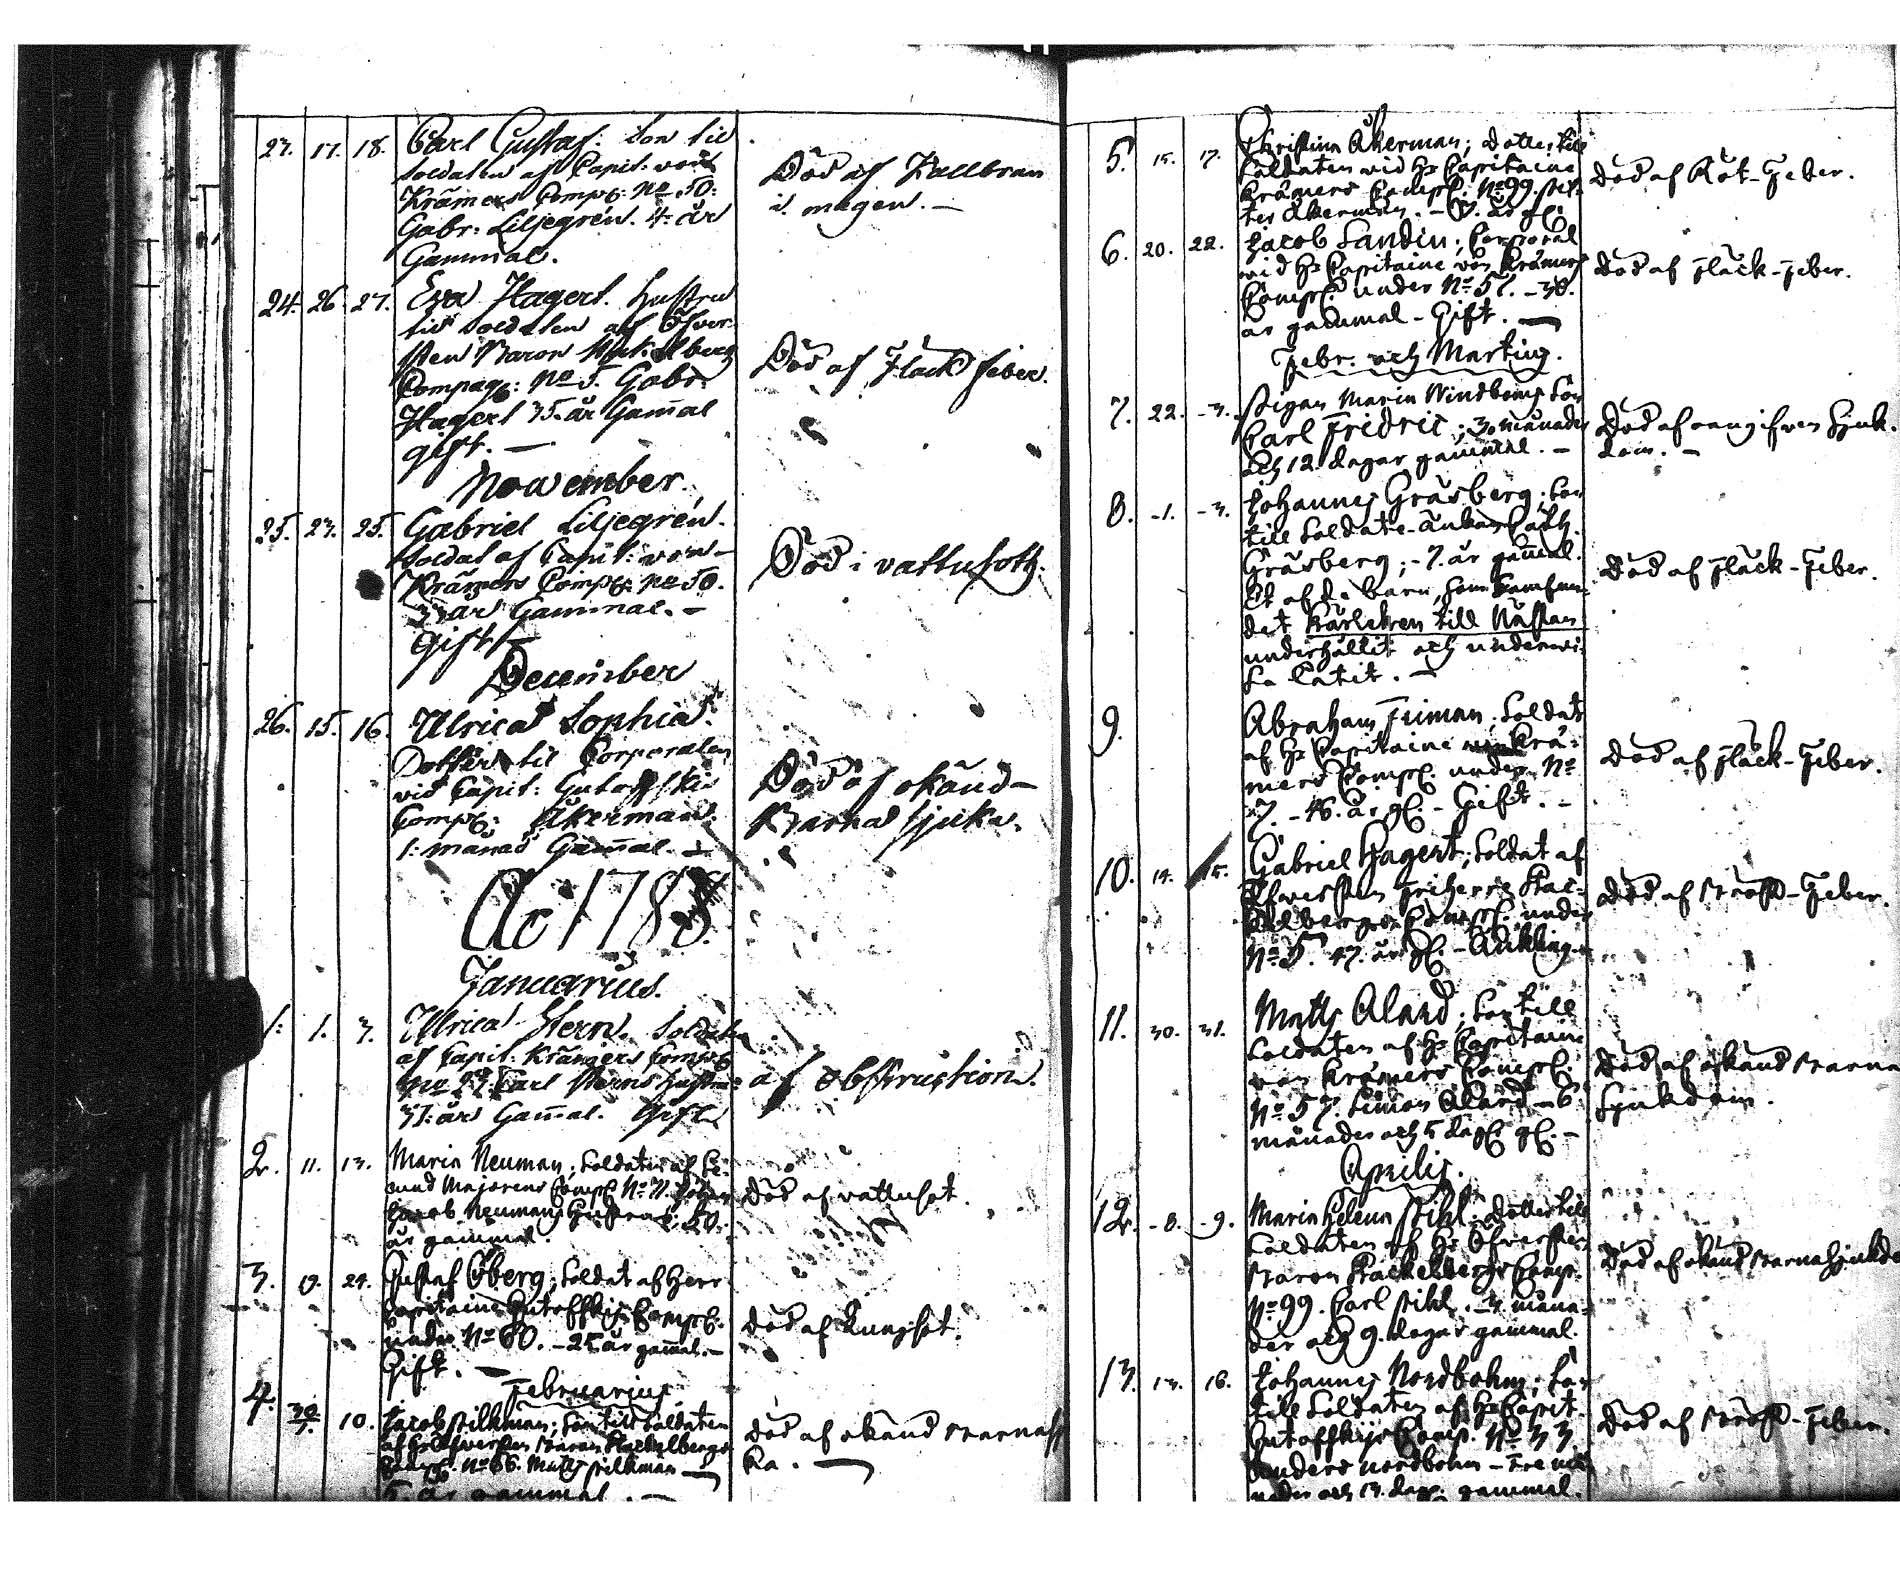 23. 17. 18. Carl Gustaf: Son til
Soldaten af Capit: von
Krämers Comp: No 50:
Gabr: Liljegrén. 4: år
Gammal.
Död af Kallbran
i magen. —
24. 26. 27. Eva Hagert. Hustru
til Soldaten af Öfver-
sten Baron
Compag: No 5. Gabr:
Hagert 35. år Gam̅al
gift. —
Död af Fläck feber.
November
25. 23. 25. Gabriel Liljegrén.
Soldat af Capit: von —
Krämers Comp: No 50.
33 år Gammal. —
Gift —
Död i vattusoth.
December
26. 15. 16. Ulrica Sophia.
Dotter til Corporalen
vid Capit: Gutoffskis
Comp: Åkerman.
1: månad Gam̅al. —
Död af okänd —
Barna sjuka.
Ao 1788.
Januarius.
1. 1. 3. Ulrica Stern. Soldaten
af Capit: Krämers Comp:
No 29 Carl Sterns hustru
37. år Gam̅al. Gift
af Obstruction.
2. 11. 13. Maria Neuman; Soldaten af Se-
cund Majorens Comp. No 71. Johan
Jacob Neumans Hustru; 50.
år gammal.
Död af vattusot.
3. 19. 24. Gustaf Öberg; Soldat af Herr
Capitaine Gutoffskijs Comp.
under No 60. — 25 år gam̅al. —
Gift. —
Död af Lungsot.
Februarius.
4. 30/1. 10. Jacob Silkman; Son till Soldaten
af Hr Öfversten Baron Stackelbergs
Comp. No 66. Matts Silkman —
år gammal. —
Död af okänd Barnasju
ka. —
5. 15. 17. Christina Åkerman; Dotter till
Soldaten vid Hr Capitaine
Krämers Comp. No 99.
ter Åkerman. — år gl.
Död af Röt-Feber.
6. 20. 22. Jacob Sandin; Corporal
vid Hr Capitaine von Krämers
Comp. under No 51. — 30.
år gammal — Gift. —
Död af Fläck-Feber.
Febr. och Martius.
7. 22. -3. Pigan Maria Windbergs Son
Carl Fridric; 3 månader
och 12. dagar gammal. —
Död af oangifven Sjuk-
dom. —
8. -1. -3. Johannes Gräsberg; Son
till Soldate-änkan Cath.
Gräsberg; — 7 år gam̅al.
Et af de barn, som Samfun-
det Kärleken till Nästan
underhållit och underwi-
sa låtit. —
Död af Fläck-Feber.
9. Abraham Friman. Soldat
af Hr Capitaine von Krä-
mers Comp. under No
7. — 46. år gl. — Gift. —
Död af Fläck-Feber.
10. 14. 15. Gabriel Hagert; Soldat af
Öfwersten Friherre Stac-
kelbergs Comp. under
No 5. 47. år gl. — Änkling —
Död af Bröst-Feber.
11. 30. 31. Matts Alard; Son till
Soldaten af Hr Capitaine
von Krämers Comp.
No 57. Simon Alard — 6
månader och 5 dag. gl. —
Död af okänd Barna
Sjukdom.
Aprilis.
12. -8. -9. Maria Helena Pihl; Dotter till
Soldaten af Hr Öfversten
Baron Stackelbergs Comp.
No 99. Carl Pihl. — 3 måna-
der och 9. dagar gammal.
Död af okänd Barnasjukdo
13. 13. 16. Johannes Nordbohm; Son
till Soldaten af Hr Capit.
Gutoffskijs Comp. No 33
Anders Nordbohm — Tre må
nader och 13. dagr. gammal.
Död af Bröst-Feber.